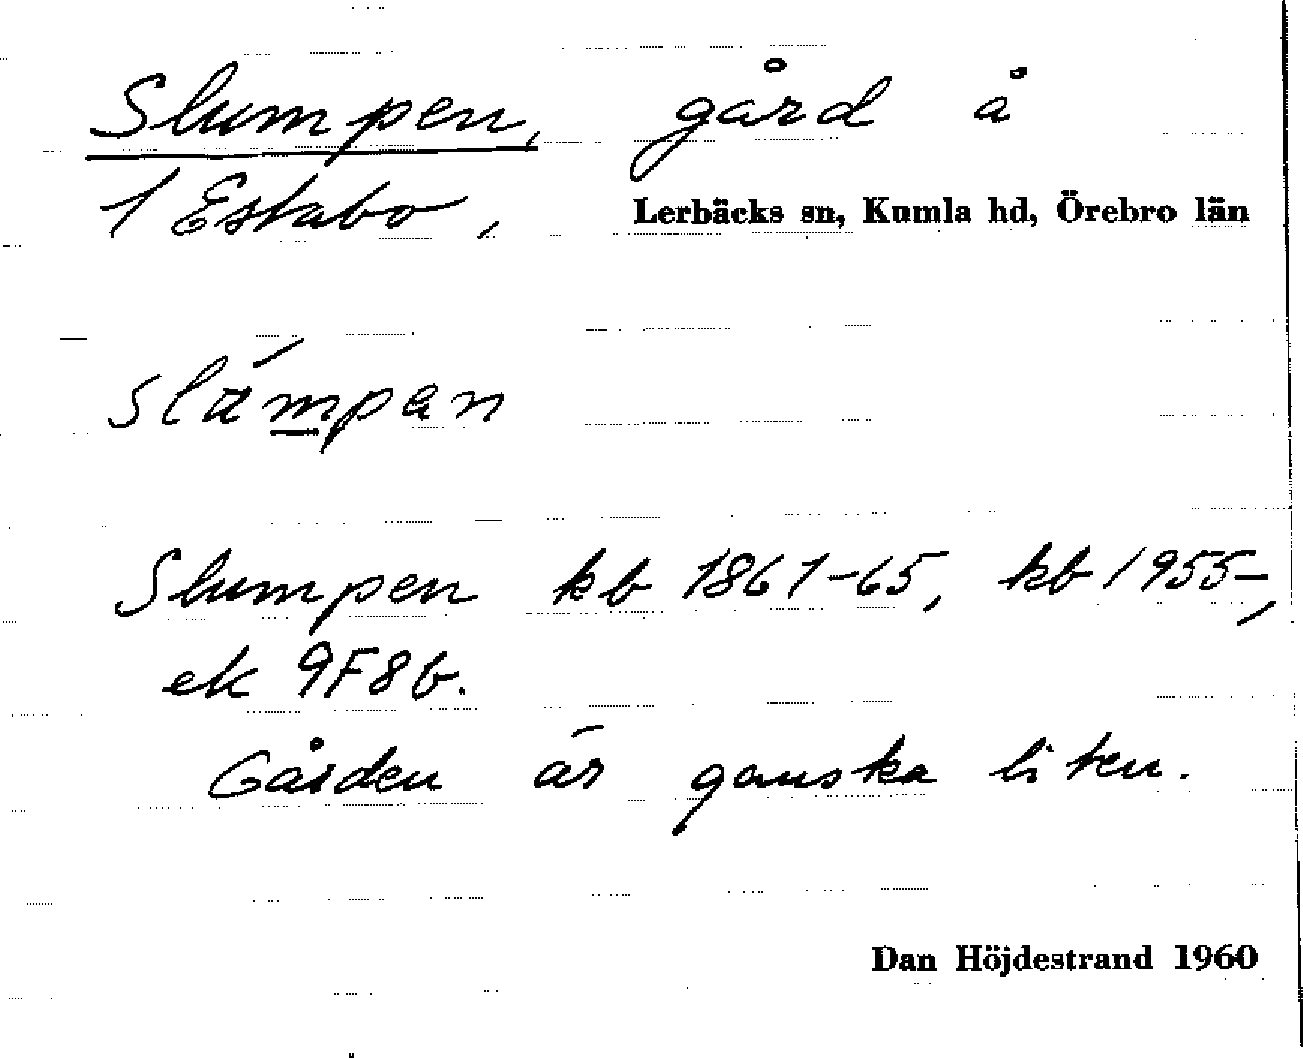 Slumpen, gård å
1 Estabo, Lerbäcks sn, Kumla hd, Örebro län
slúmpan
Slumpen kb 1861-65, kb 1955-,
ek 9F8b.
Gården är ganska liten.
Dan Höjdestrand 1960